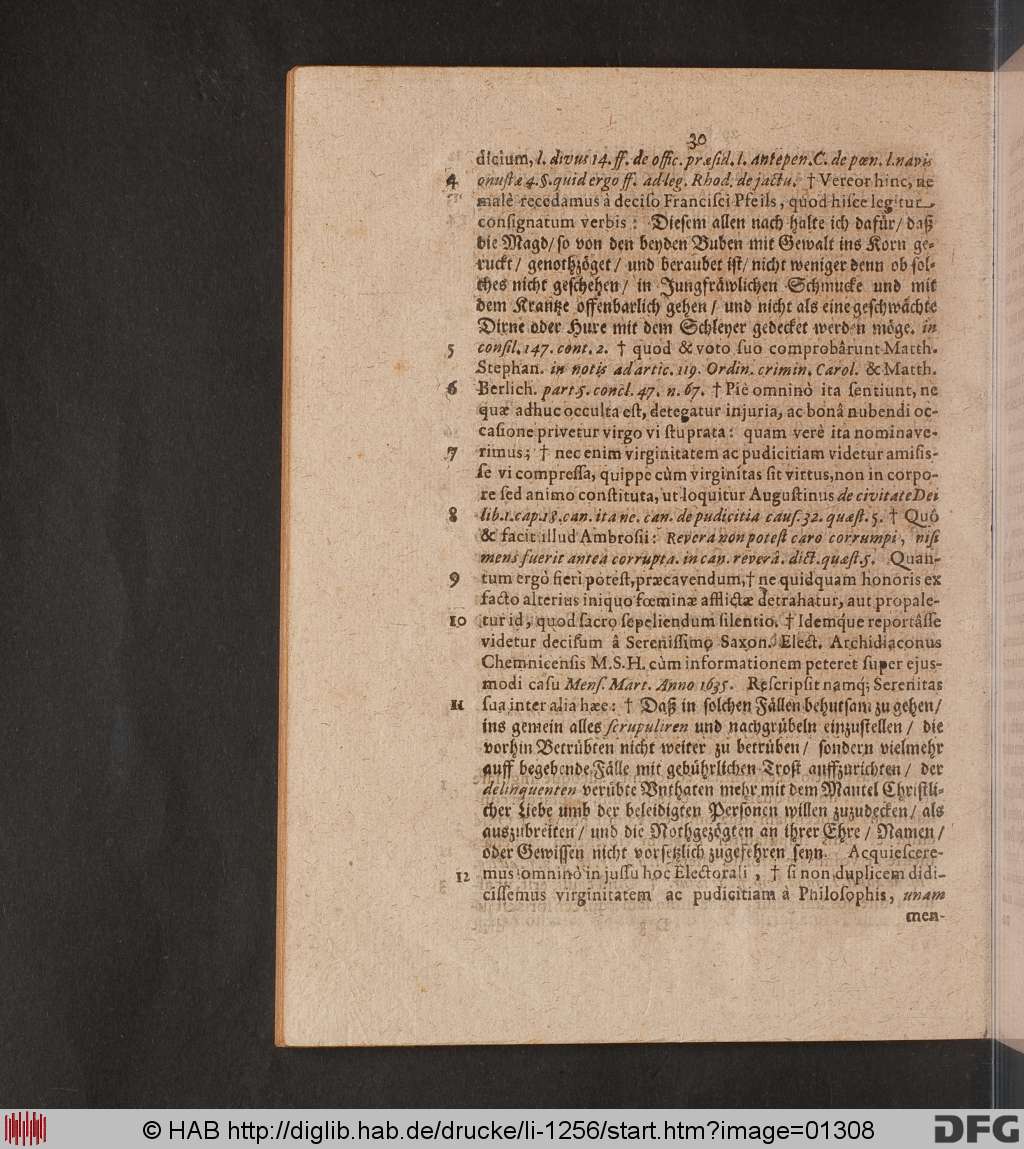 30
dicium, l. divus 14. ff. de offic. præsid. l. antepen. C. de pœn. l. navis
4 onustæ 4. §. quid ergo ff. ad leg. Rhod. de jactu. † Vereor hinc, ne
malè recedamus à deciso Francisci Pfeils, quod hisce legitur
consignatum verbis: Diesem allen nach halte ich dafür / daß
die Magd / so von den beyden Buben mit Gewalt ins Korn ge-
ruckt / genothzöget / und beraubet ist / nicht weniger denn ob sol-
ches nicht geschehen / in Jungfräwlichen Schmucke und mit
dem Krantze offenbarlich gehen / und nicht als eine geschwächte
Dirne oder Hure mit dem Schleyer gedecket werden möge. in
5 consil. 147. cent. 2. † quod & voto suo comprobârunt Matth.
Stephan. in notis ad artic. 119. Ordin. crimin. Carol. & Matth.
6 Berlich. part. 5. concl. 47. n. 67. † Piè omninò ita sentiunt, ne
quæ adhuc occulta est, detegatur injuria, ac bonâ nubendi oc-
casione privetur virgo vi stuprata: quam verè ita nominave-
7 rimus; † nec enim virginitatem ac pudicitiam videtur amisis-
se vi compressa, quippe cùm virginitas sit virtus, non in corpo-
re sed animo constituta, ut loquitur Augustinus de civitate Dei
8 lib. 1. cap. 18. can. ita ne. can. de pudicitia caus. 32. quæst. 5. † Quò
& facit illud Ambrosii: Revera non potest caro corrumpi, nisi
mens fuerit antea corrupta. in can. reverâ. dict. quæst. 5. Quan-
9 tum ergò fieri potest, præcavendum, † ne quidquam honoris ex
facto alterius iniquo fœminæ afflictæ detrahatur, aut propale-
10 tur id, quod sacro sepeliendum silentio. † Idemq́ue reportâsse
videtur decisum â Serenissimo Saxon. Elect. Archidiaconus
Chemnicensis M. S. H. cùm informationem peteret super ejus-
modi casu Mens. Mart. Anno 1635. Rescripsit namq; Serenitas
11 sua inter alia hæc: † Daß in solchen Fällen behutsam zu gehen /
ins gemein alles scrupuliren und nachgrübeln einzustellen / die
vorhin Betrübten nicht weiter zu betrüben / sondern vielmehr
auff begebende Fälle mit gebührlichen Trost auffzurichten / der
delinquenten verübte Vnthaten mehr mit dem Mantel Christli-
cher Liebe umb der beleidigten Personen willen zuzudecken / als
auszubreiten / und die Nothgezögten an ihrer Ehre / Namen /
oder Gewissen nicht vorsetzlich zugefehren seyn. Acquiescere-
12 mus omninò in jussu hoc Electorali, † si non duplicem didi-
cissemus virginitatem ac pudicitiam à Philosophis, unam
men-
© HAB http://diglib.hab.de/drucke/li-1256/start.htm?image=01308
DFG